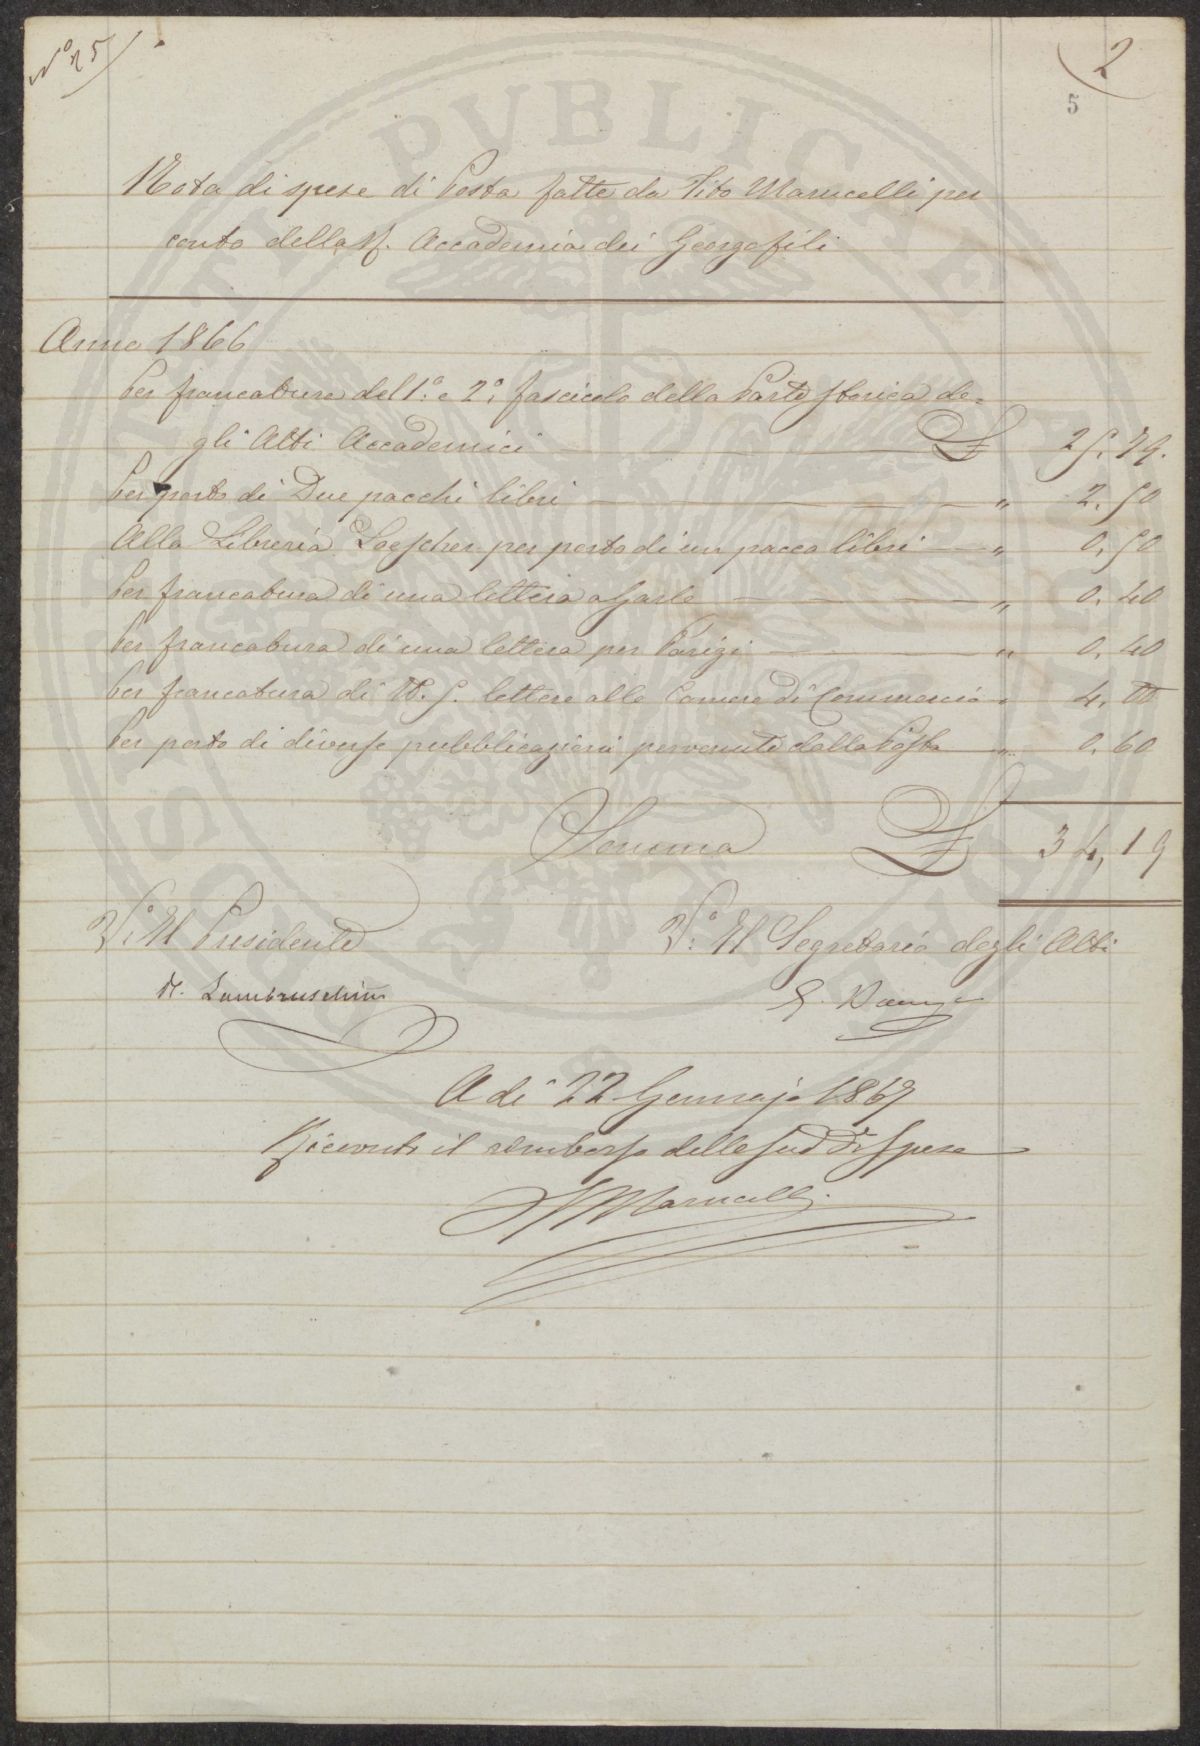 N° 25
2
5
PROSPERITATI PVBLICAE AVGENDAE
Nota di spese di Posta fatte da Tito Marucelli per
conto della R. Accademia dei Georgofili
Anno 1866
Per francatura del 1.° e 2.° fascicolo della Parte storica de=
gli Atti Accademici £ 25.79.
Per porto di Due pacchi libri " 2.50
Alla Libreria Loescher per porto di un pacco libri " 0,50
Per francatura di una lettera a " 0.40
Per francatura di una lettera per Parigi " 0,40
Per francatura di N. 5. lettere alle Camere di Commercio " 4,00
Per porto di diverse pubblicazioni pervenute dalla Posta " 0.60
Somma £ 34,19
V.° Il Presidente
V.° Il Segretario degli Atti
R. Lambruschini
A di 22 Gennajo 1867
Ricevuto il rimborso delle sud.de spese
T Marucelli